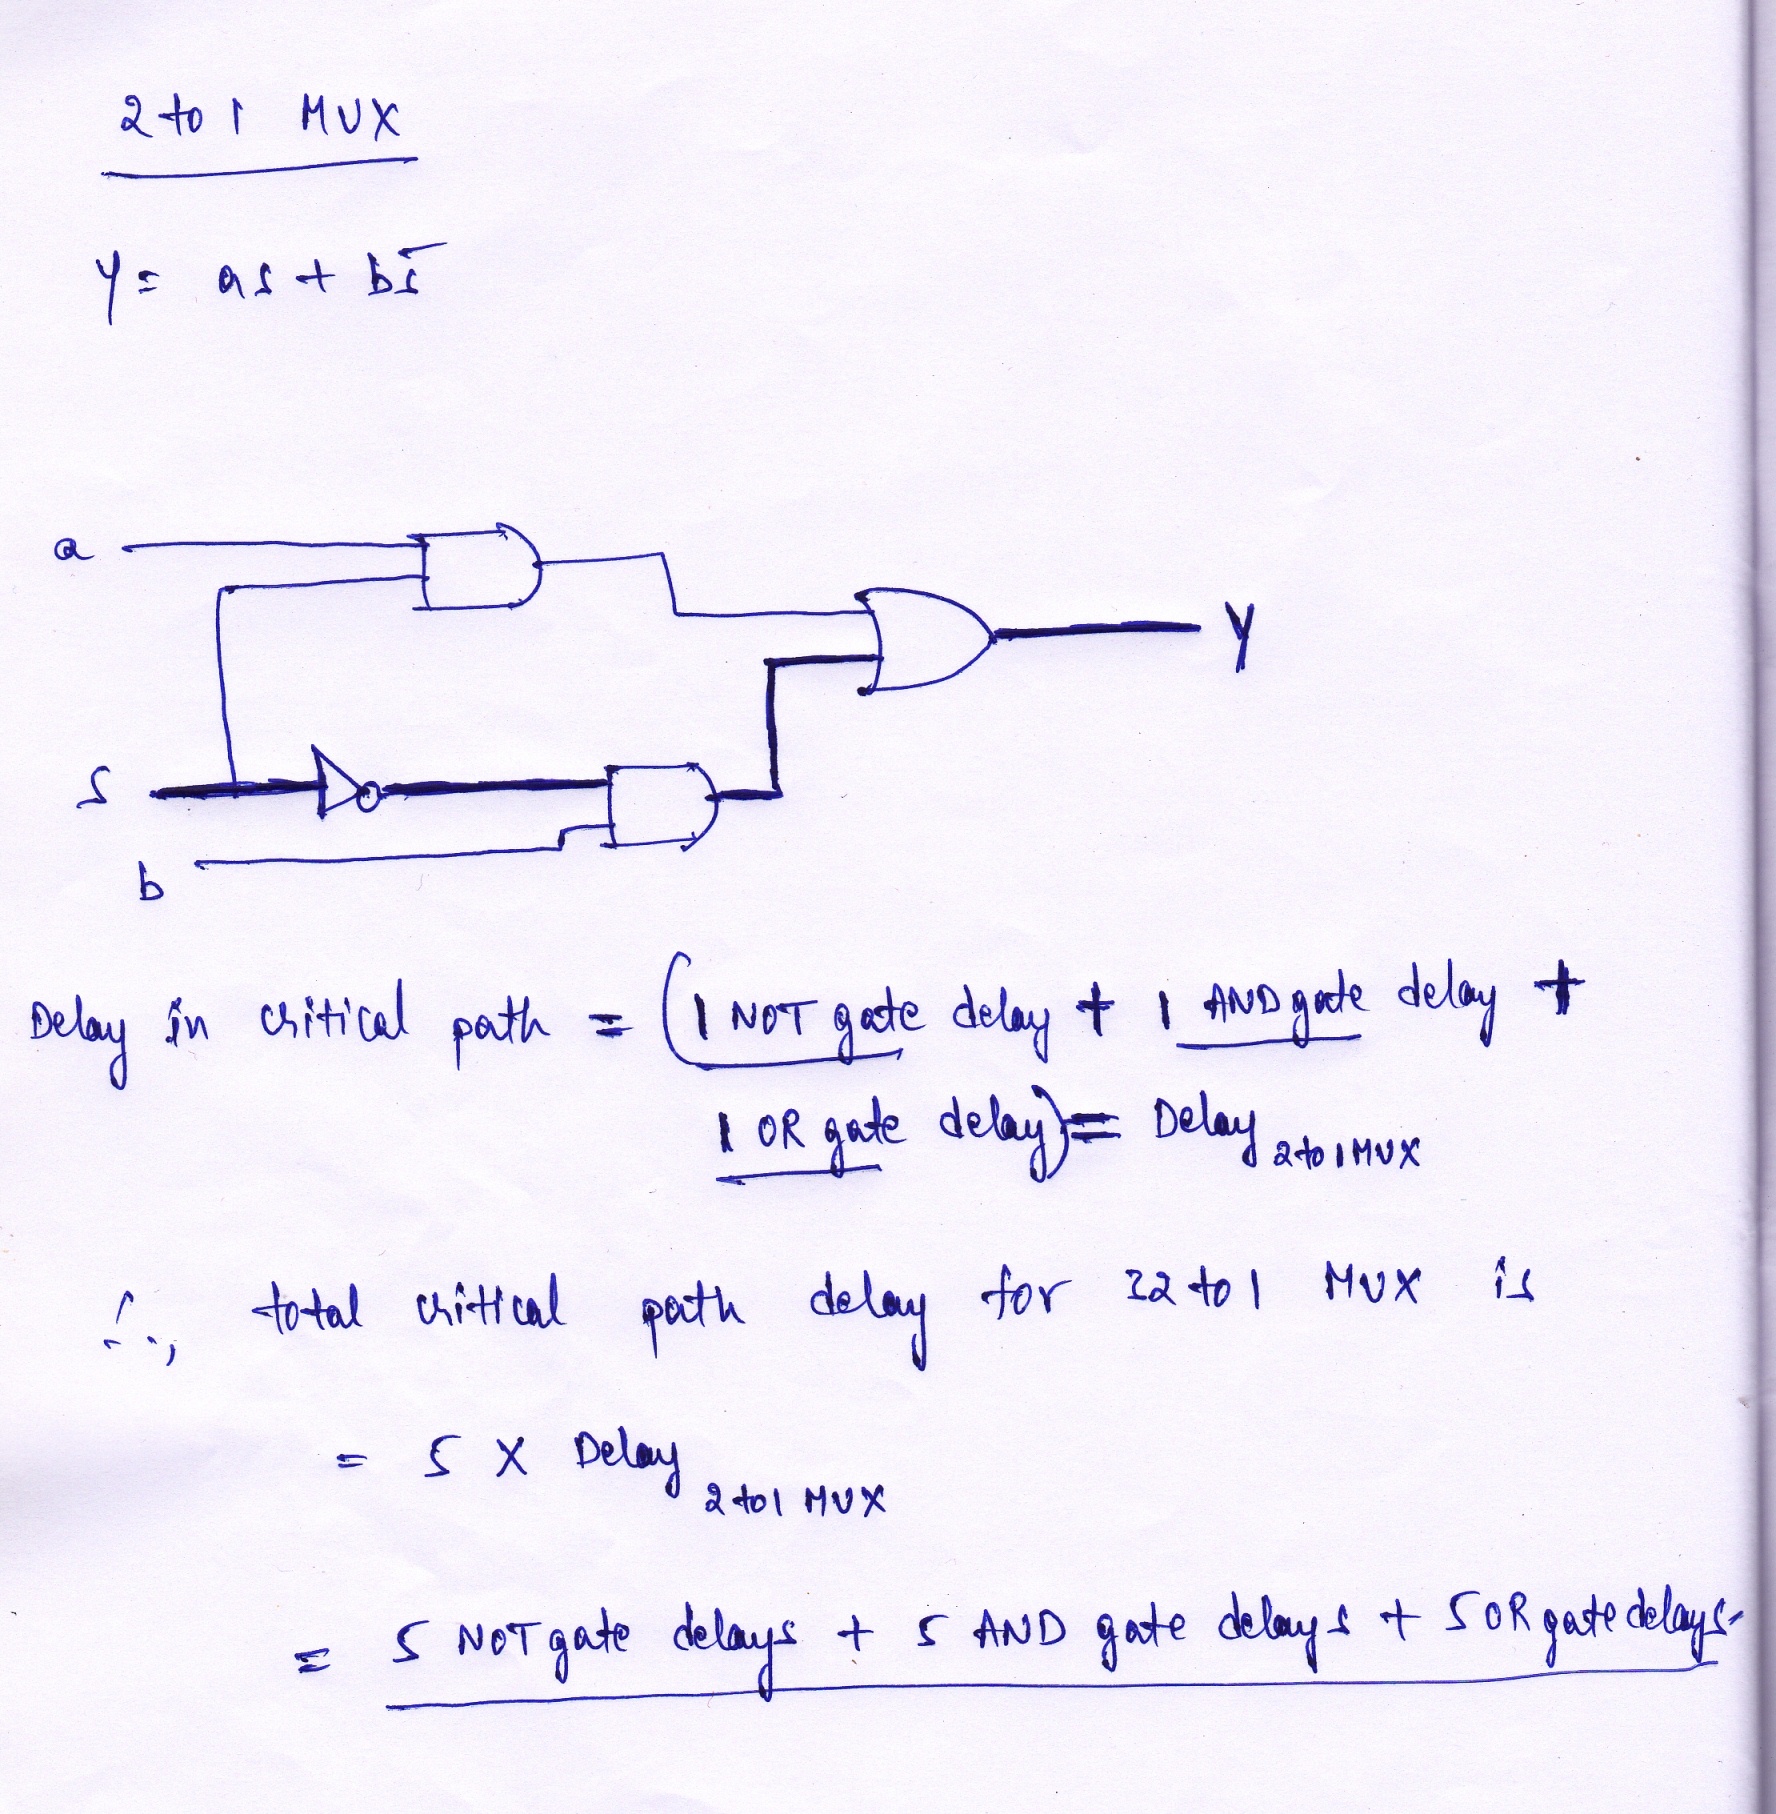 2 to 1 MUX
Y = as + bs̅
a
Y
s
b
Delay in critical path = (1 NOT gate delay + 1 AND gate delay +
1 OR gate delay) = Delay 2 to 1 MUX
∴, total critical path delay for 32 to 1 MUX is
= 5 X Delay 2 to 1 MUX
= 5 NOT gate delays + 5 AND gate delays + 5 OR gate delays.